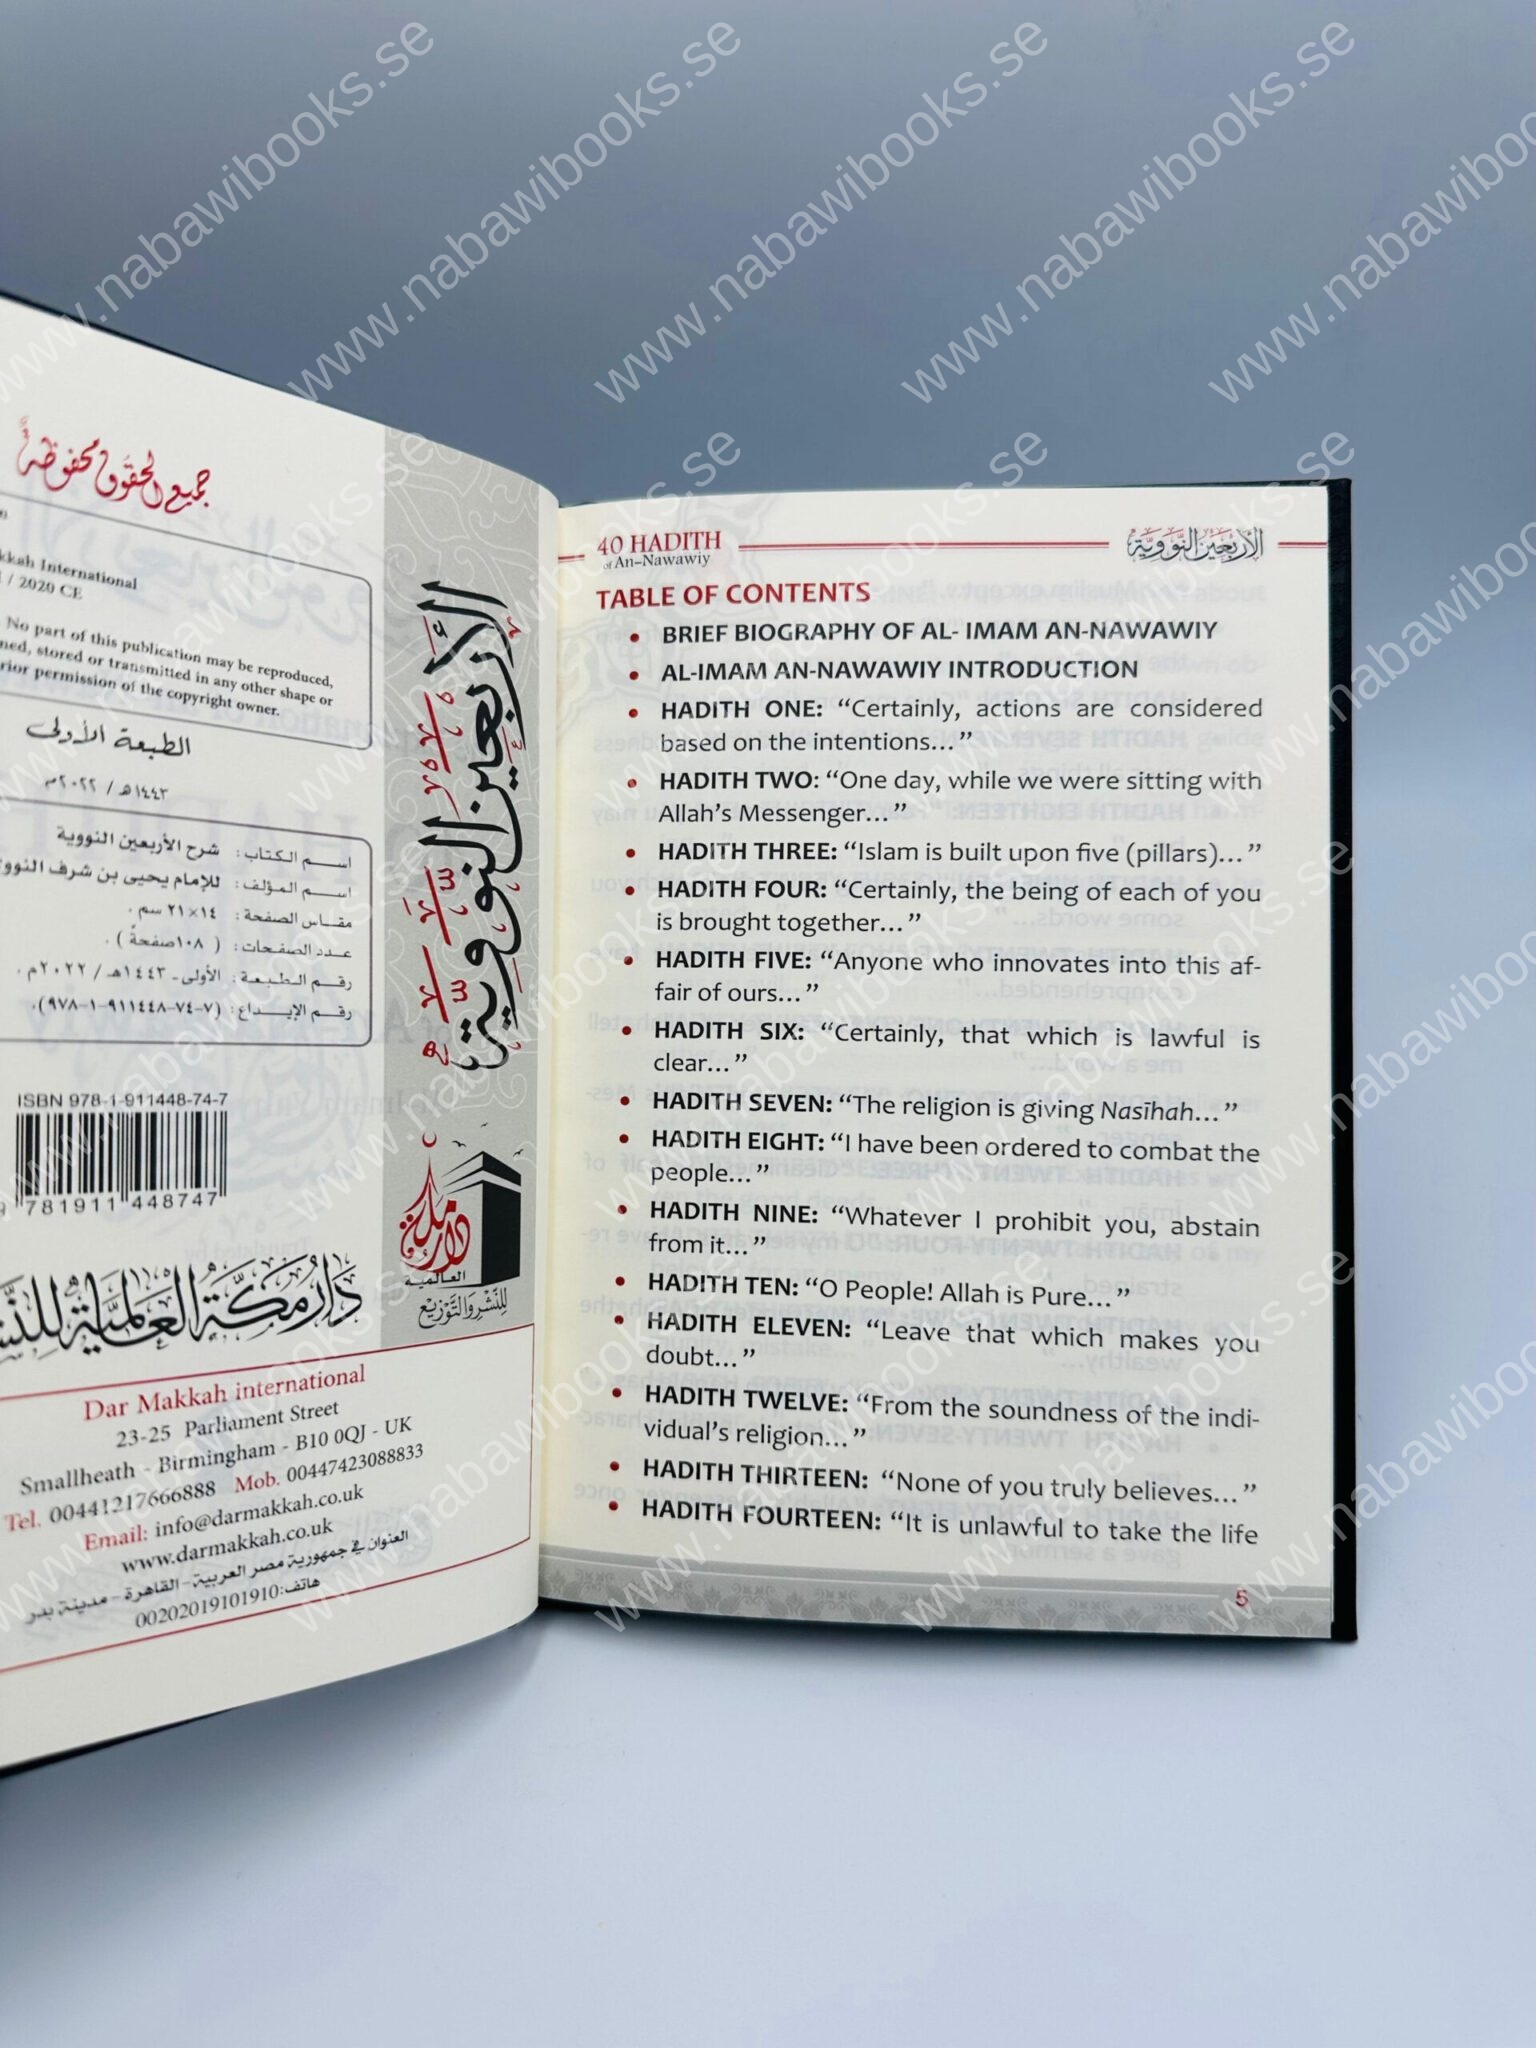 جميع الحقوق محفوظة
kkah International
/ 2020 CE
No part of this publication may be reproduced,
stored or transmitted in any other shape or
permission of the copyright owner.
الطبعة الأولى
١٤٤٣هـ / ٢٠٢٢م
اسم الكتاب: شرح الأربعين النووية
اسم المؤلف: للإمام يحيى بن شرف
مقاس الصفحة: ١٤×٢١ سم.
عدد الصفحات: (١٠٨صفحةً).
رقم الطبعة: الأولى- ١٤٤٣هـ/ ٢٠٢٢م.
رقم الإيداع: (٩٧٨-١-٩١١٤٤٨-٧٤-٧).
ISBN 978-1-911448-74-7
9 781911 448747
دار مكة العالمية
Dar Makkah international
23-25 Parliament Street
Smallheath - Birmingham - B10 0QJ - UK
Tel. 00441217666888 Mob. 00447423088833
Email: info@darmakkah.co.uk
www.darmakkah.co.uk
العنوان في جمهورية مصر العربية - القاهرة - مدينة بدر
هاتف:00202019101910
الأربعين النووية
دار مكة
العالمية
للنشر والتوزيع
40 HADITH
of An-Nawawiy
الأربعين النووية
TABLE OF CONTENTS
• BRIEF BIOGRAPHY OF AL- IMAM AN-NAWAWIY
• AL-IMAM AN-NAWAWIY INTRODUCTION
• HADITH ONE: “Certainly, actions are considered
based on the intentions...”
• HADITH TWO: “One day, while we were sitting with
Allah’s Messenger...”
• HADITH THREE: “Islam is built upon five (pillars)...”
• HADITH FOUR: “Certainly, the being of each of you
is brought together...”
• HADITH FIVE: “Anyone who innovates into this af-
fair of ours...”
• HADITH SIX: “Certainly, that which is lawful is
clear...”
• HADITH SEVEN: “The religion is giving Nasīhah...”
• HADITH EIGHT: “I have been ordered to combat the
people...”
• HADITH NINE: “Whatever I prohibit you, abstain
from it...”
• HADITH TEN: “O People! Allah is Pure...”
• HADITH ELEVEN: “Leave that which makes you
doubt...”
• HADITH TWELVE: “From the soundness of the indi-
vidual’s religion...”
• HADITH THIRTEEN: “None of you truly believes...”
• HADITH FOURTEEN: “It is unlawful to take the life
5
www.nabawibooks.se